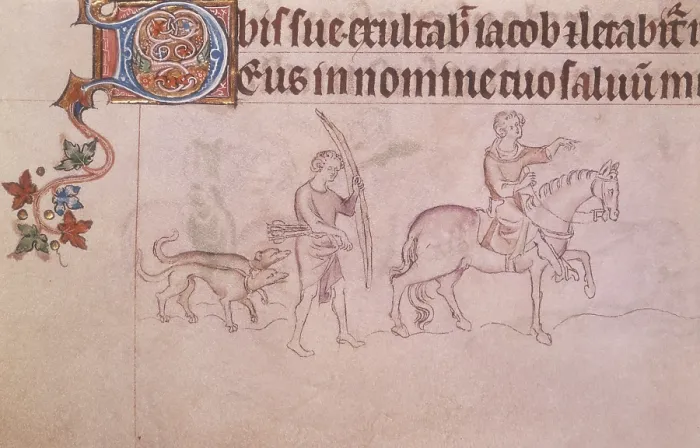 biſ ſue·exultab̄ iacob ⁊ letabit᷑ i
DEus in nomine tuo ſaluū m